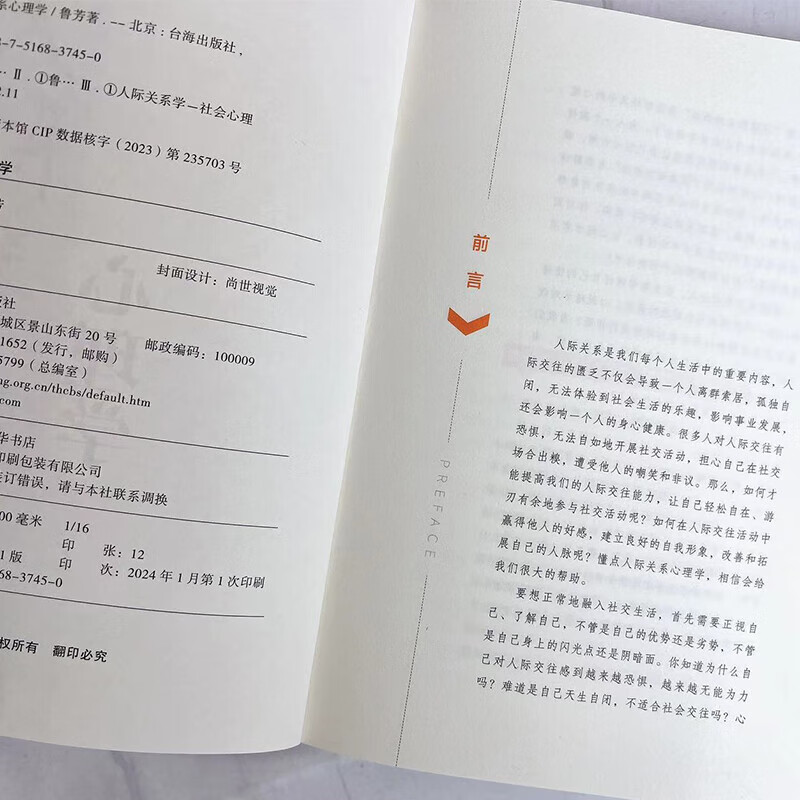 系心理学/鲁芳著.--北京:台海出版社,
-7-5168-3745-0
… Ⅱ.①鲁… Ⅲ.①人际关系学—社会心理
.11
本馆CIP数据核字(2023)第235703号
学
芳
封面设计:尚世视觉
版社
城区景山东街20号 邮政编码:100009
1652(发行,邮购)
5799(总编室)
ng.org.cn/thcbs/default.htm
.com
华书店
印刷包装有限公司
装订错误,请与本社联系调换
00毫米 1/16
印 张:12
1版 印 次:2024年1月第1次印刷
168-3745-0
权所有 翻印必究
前言
PREFACE
人际关系是我们每个人生活中的重要内容,人
际交往的匮乏不仅会导致一个人离群索居,孤独自
闭,无法体验到社会生活的乐趣,影响事业发展,
还会影响一个人的身心健康。很多人对人际交往有
恐惧,无法自如地开展社交活动,担心自己在社交
场合出糗,遭受他人的嘲笑和非议。那么,如何才
能提高我们的人际交往能力,让自己轻松自在、游
刃有余地参与社交活动呢?如何在人际交往活动中
赢得他人的好感,建立良好的自我形象,改善和拓
展自己的人脉呢?懂点人际关系心理学,相信会给
我们很大的帮助。
要想正常地融入社交生活,首先需要正视自
己、了解自己,不管是自己的优势还是劣势,不管
是自己身上的闪光点还是阴暗面。你知道为什么自
己对人际交往感到越来越恐惧,越来越无能为力
吗?难道是自己天生自闭,不适合社会交往吗?心